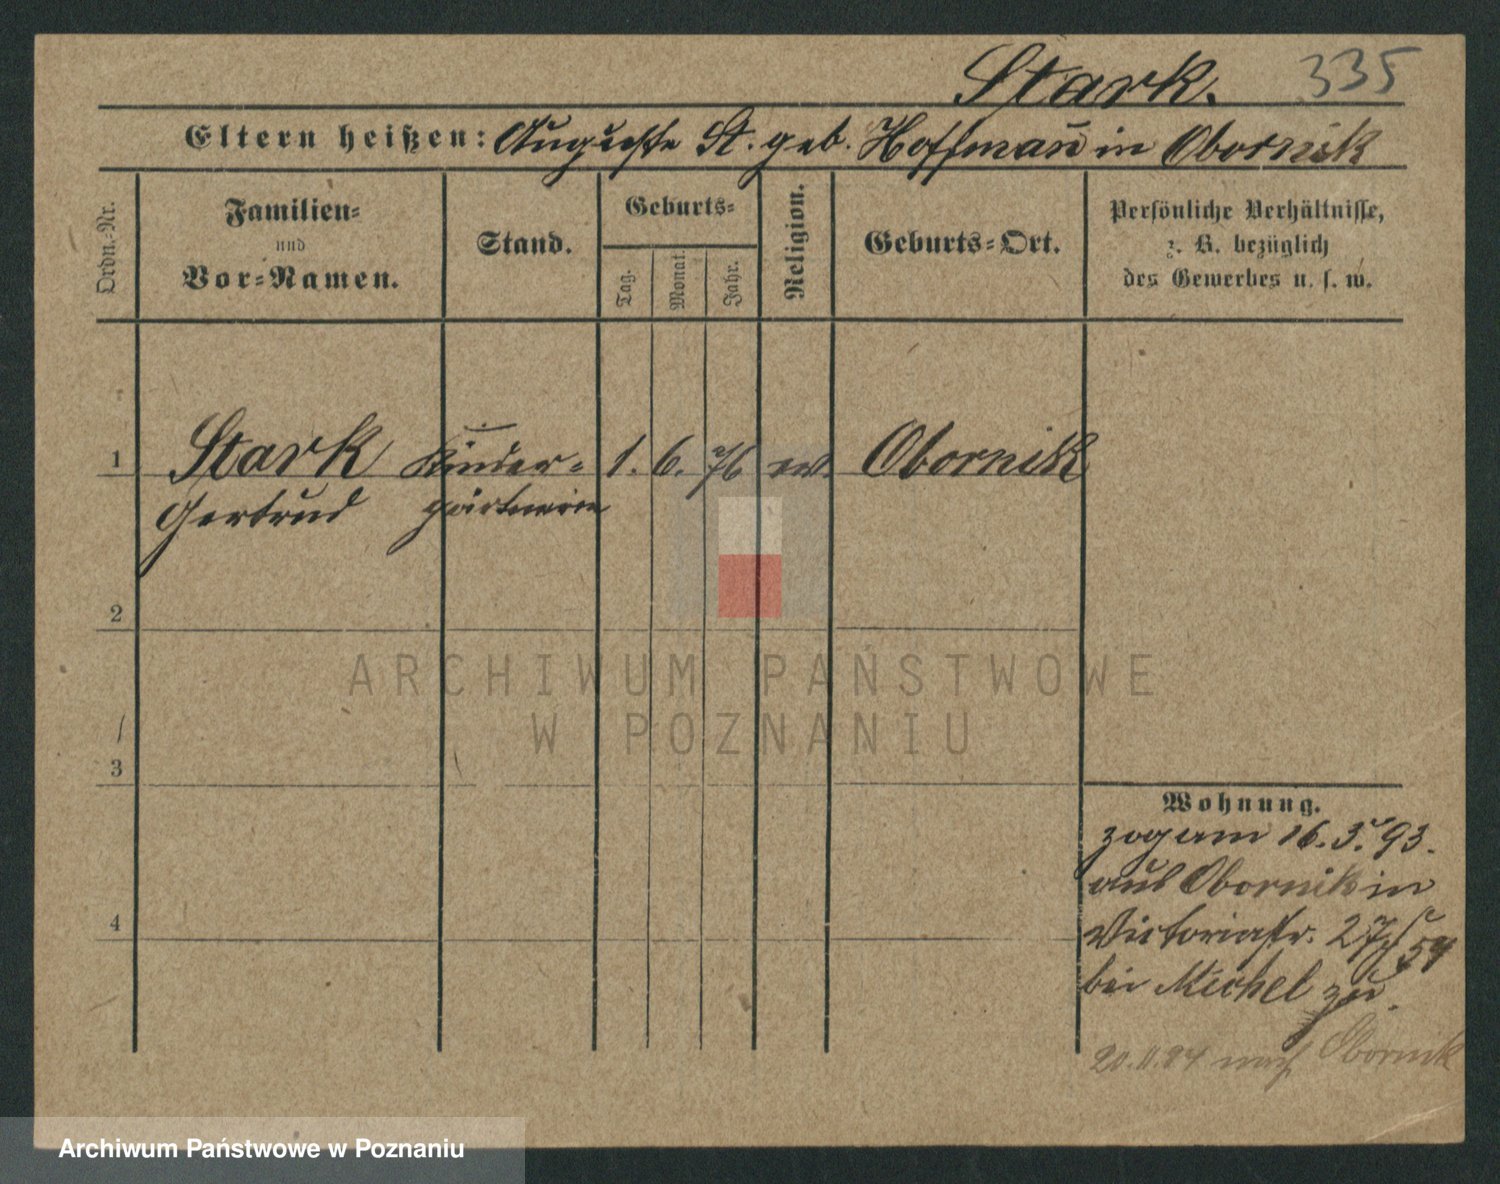 Stark. 335
Eltern heißen: Auguste St. geb. Hoffman̄ in Obornik
Ordn.-Nr.
Familien-
und
Vor-Namen.
Stand.
Geburts-
Tag.
Monat.
Jahr.
Religion.
Geburts-Ort.
Persönliche Verhältnisse,
z. B. bezüglich
des Gewerbes u. s. w.
1 Stark Kinder- 1. 6. 76 ev. Obornik
Gertrud gärtnerin
2
3
4
Wohnung.
zog am 16. 3. 93.
aus Obornik in
Victoriastr. 27
bei Michel zu.
20.11.94 nach Obornik
ARCHIWUM PAŃSTWOWE
W POZNANIU
Archiwum Państwowe w Poznaniu